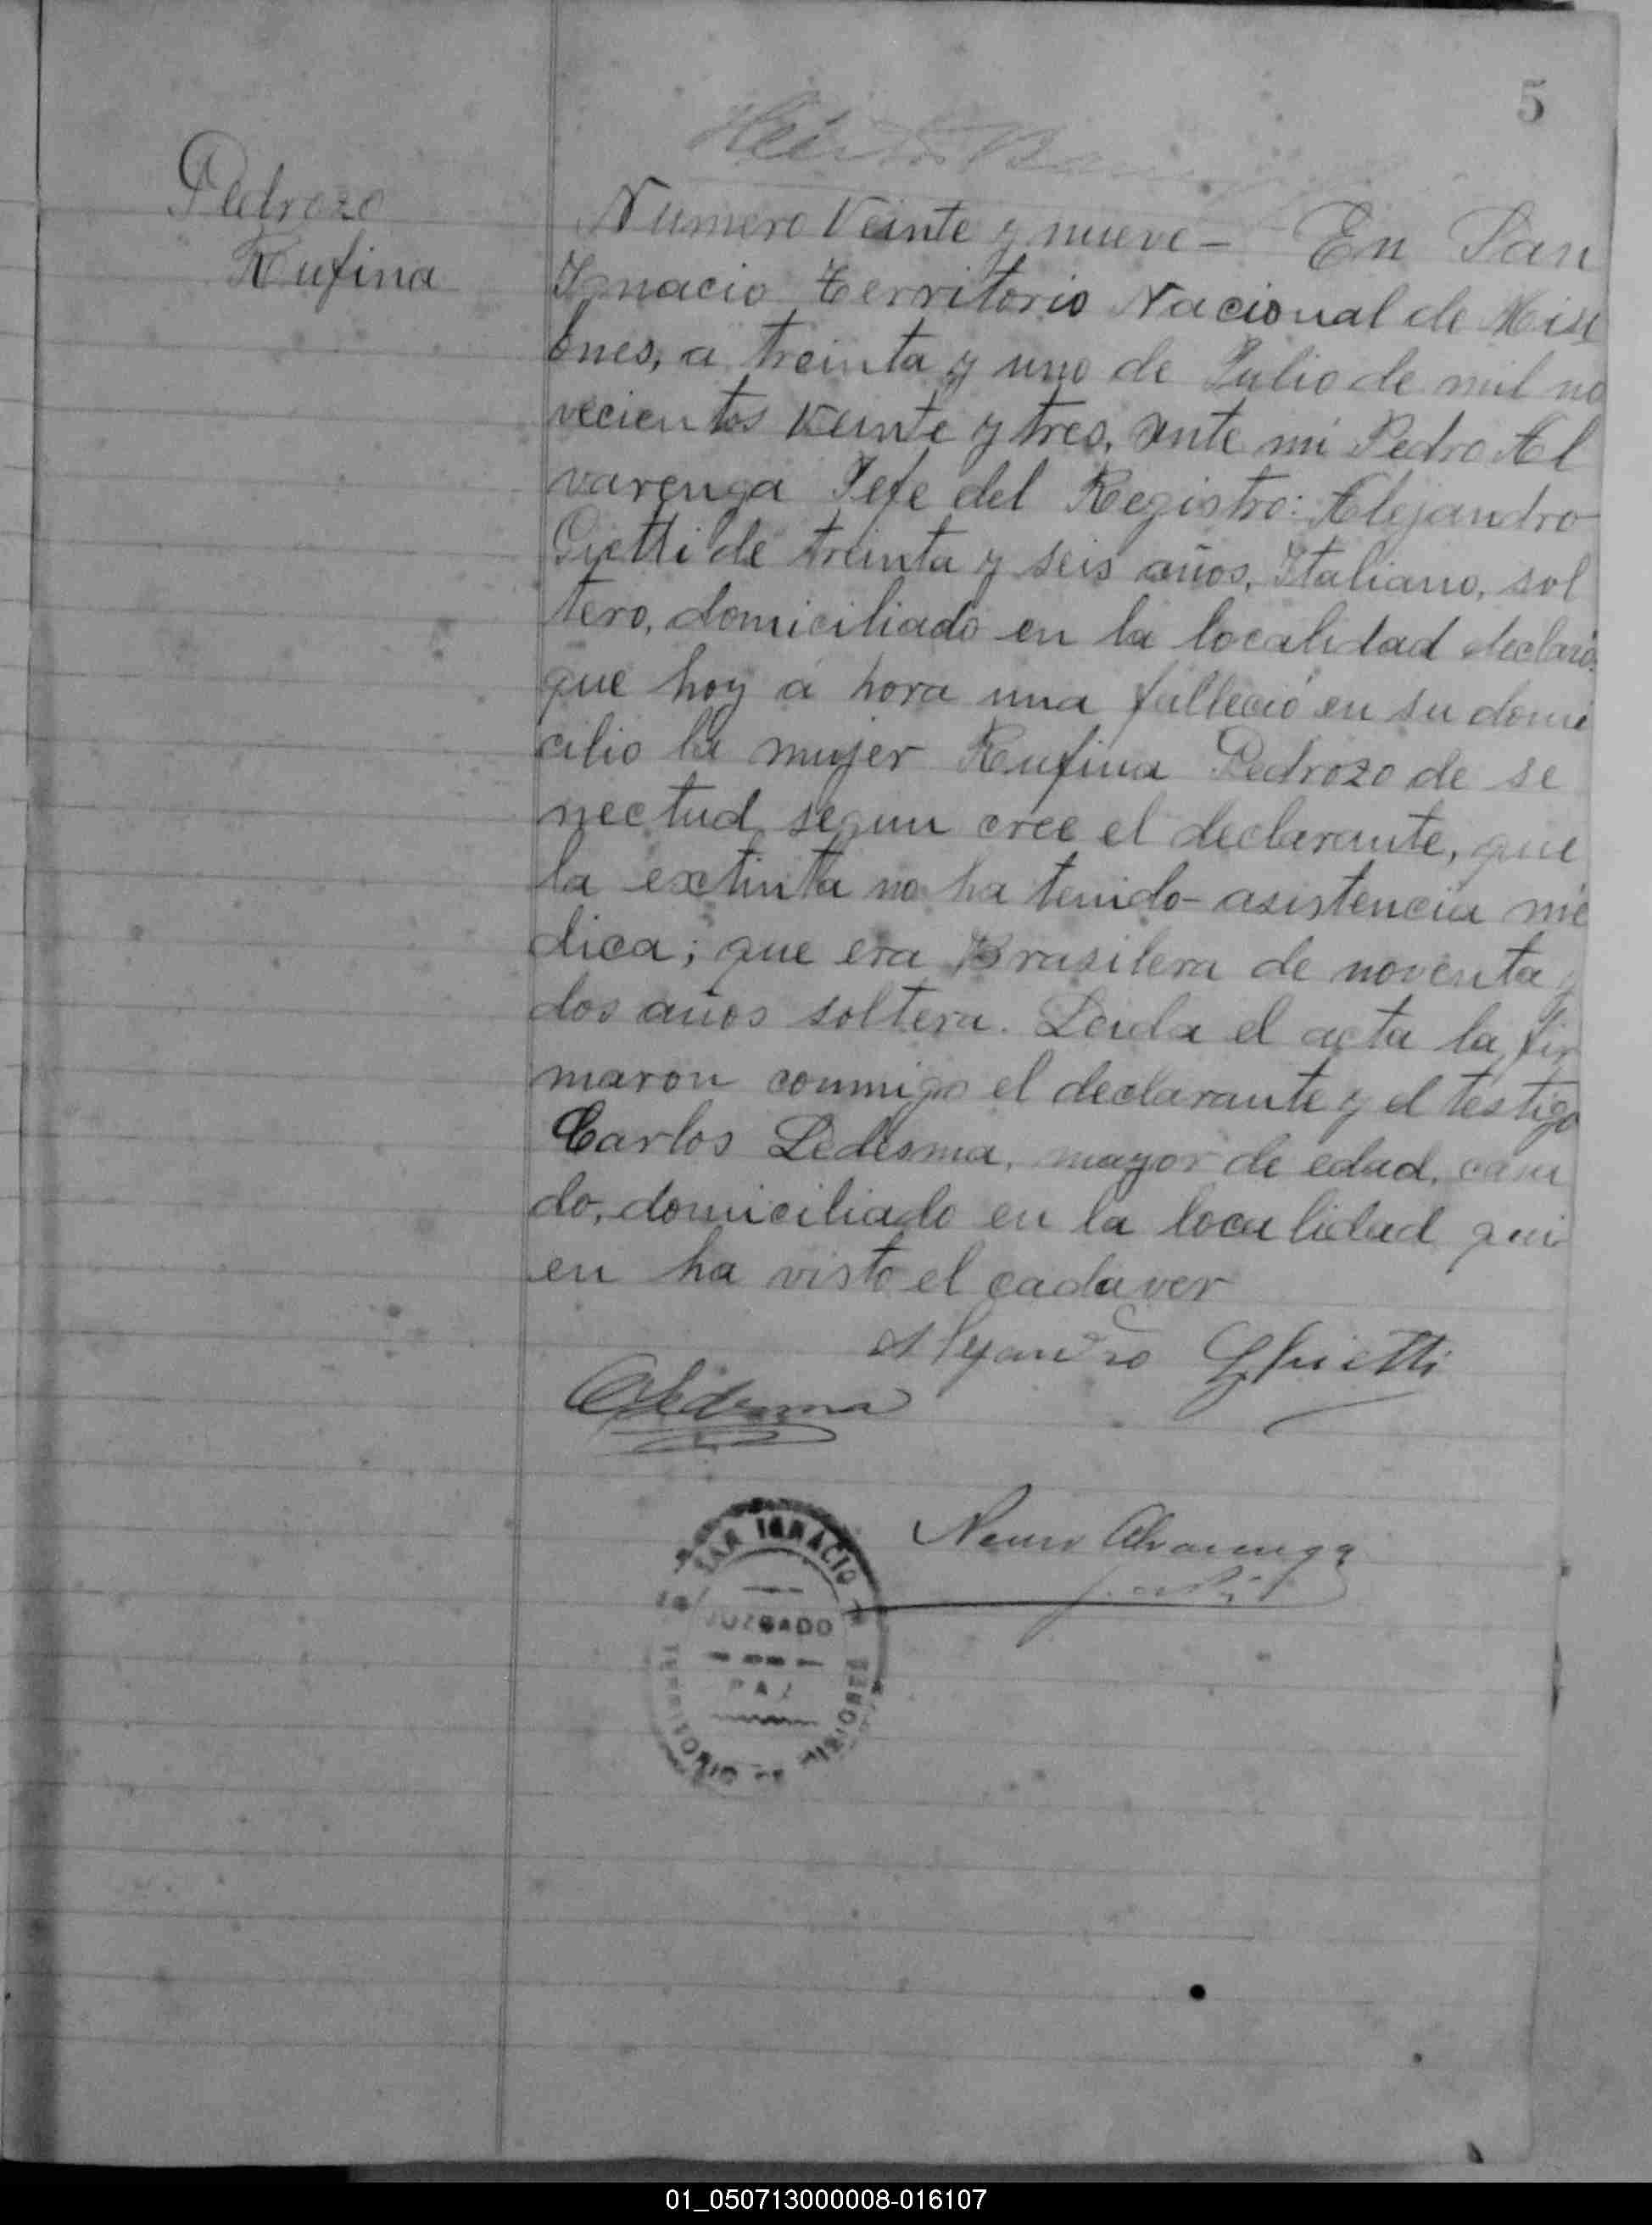 5
Pedrozo
Rufina
Numero Veinte y nueve - En San
Ignacio Territorio Nacional de Misi
ones, a treinta y uno de Julio de mil no
vecientos veinte y tres, ante mi Pedro Al
varenga Jefe del Registro: Alejandro
Gietti de treinta y seis años, Italiano, sol
tero, domiciliado en la localidad declaró:
que hoy a hora una falleció en su domi
cilio la mujer Rufina Pedrozo de se
nectud segun cree el declarante, que
la extinta no ha tenido asistencia mé
dica; que era Brasilera de noventa y
dos años soltera. Leida el acta la fir
maron conmigo el declarante y el testigo
Carlos Ledesma, mayor de edad, casa
do, domiciliado en la localidad qui
en ha visto el cadaver
Alejandro Ghietti
CLedesma
Alvarenga
SAN IGNACIO
JUZGADO
PAZ
TERRITORIO DE MISIONES
01_050713000008-016107